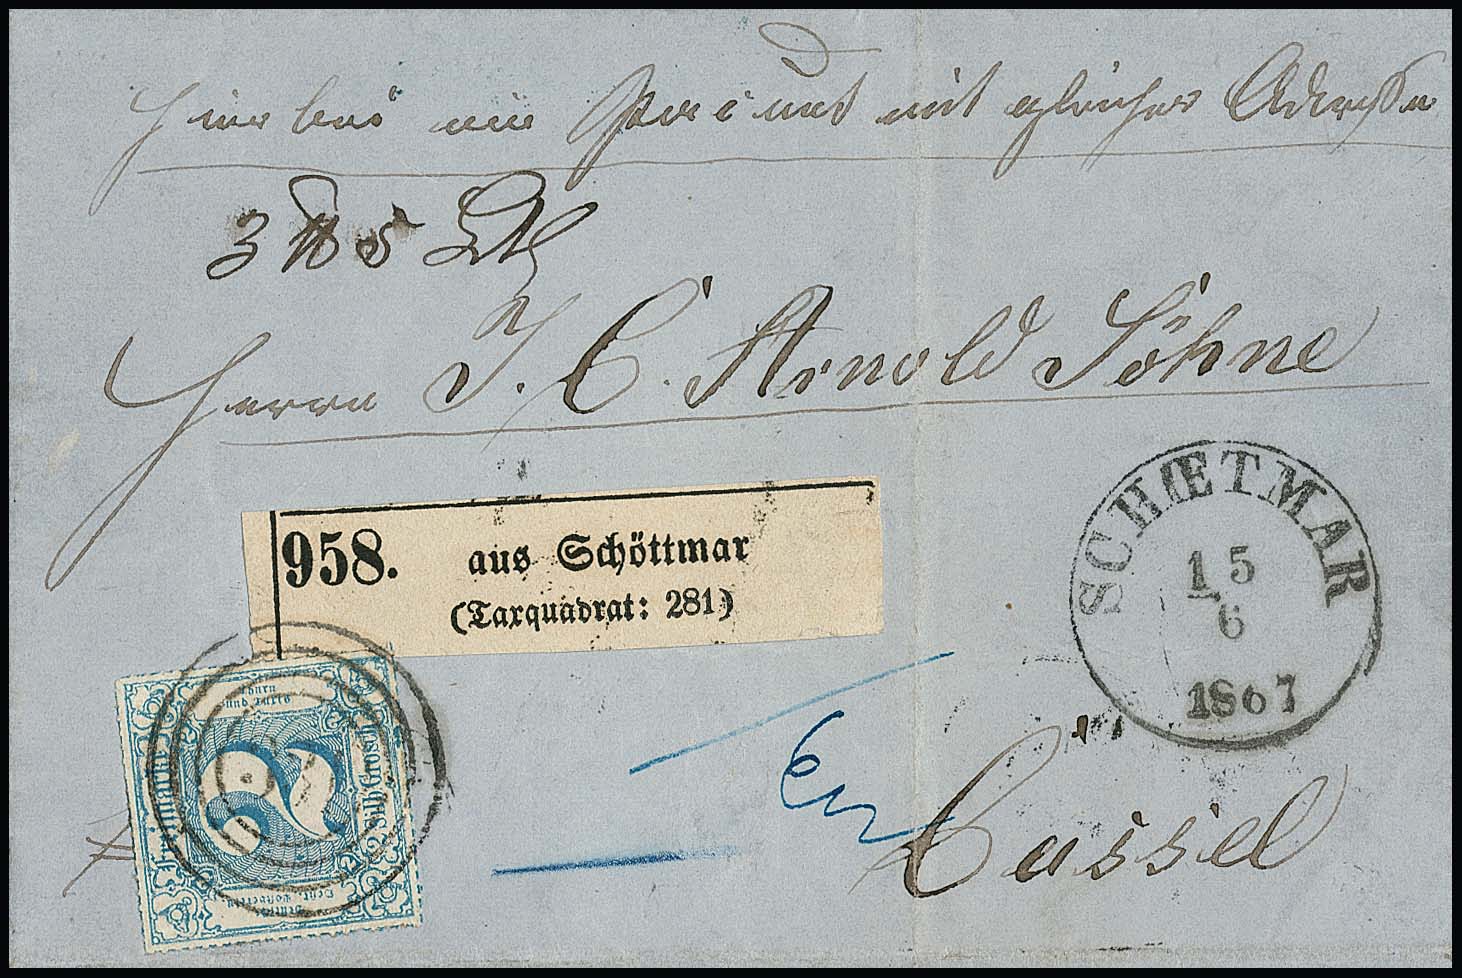 Hierbei ein Packet mit gleicher Adresse
3 ℔ 5 Lth
Herrn J. C. Arnold Söhne
958. aus Schöttmar
(Taxquadrat: 281)
SCHŒTMAR
15
6
1867
Thurn
und Taxis
Freimarke
2
2 Silb. Grosch.
Deutsch.
Cassel